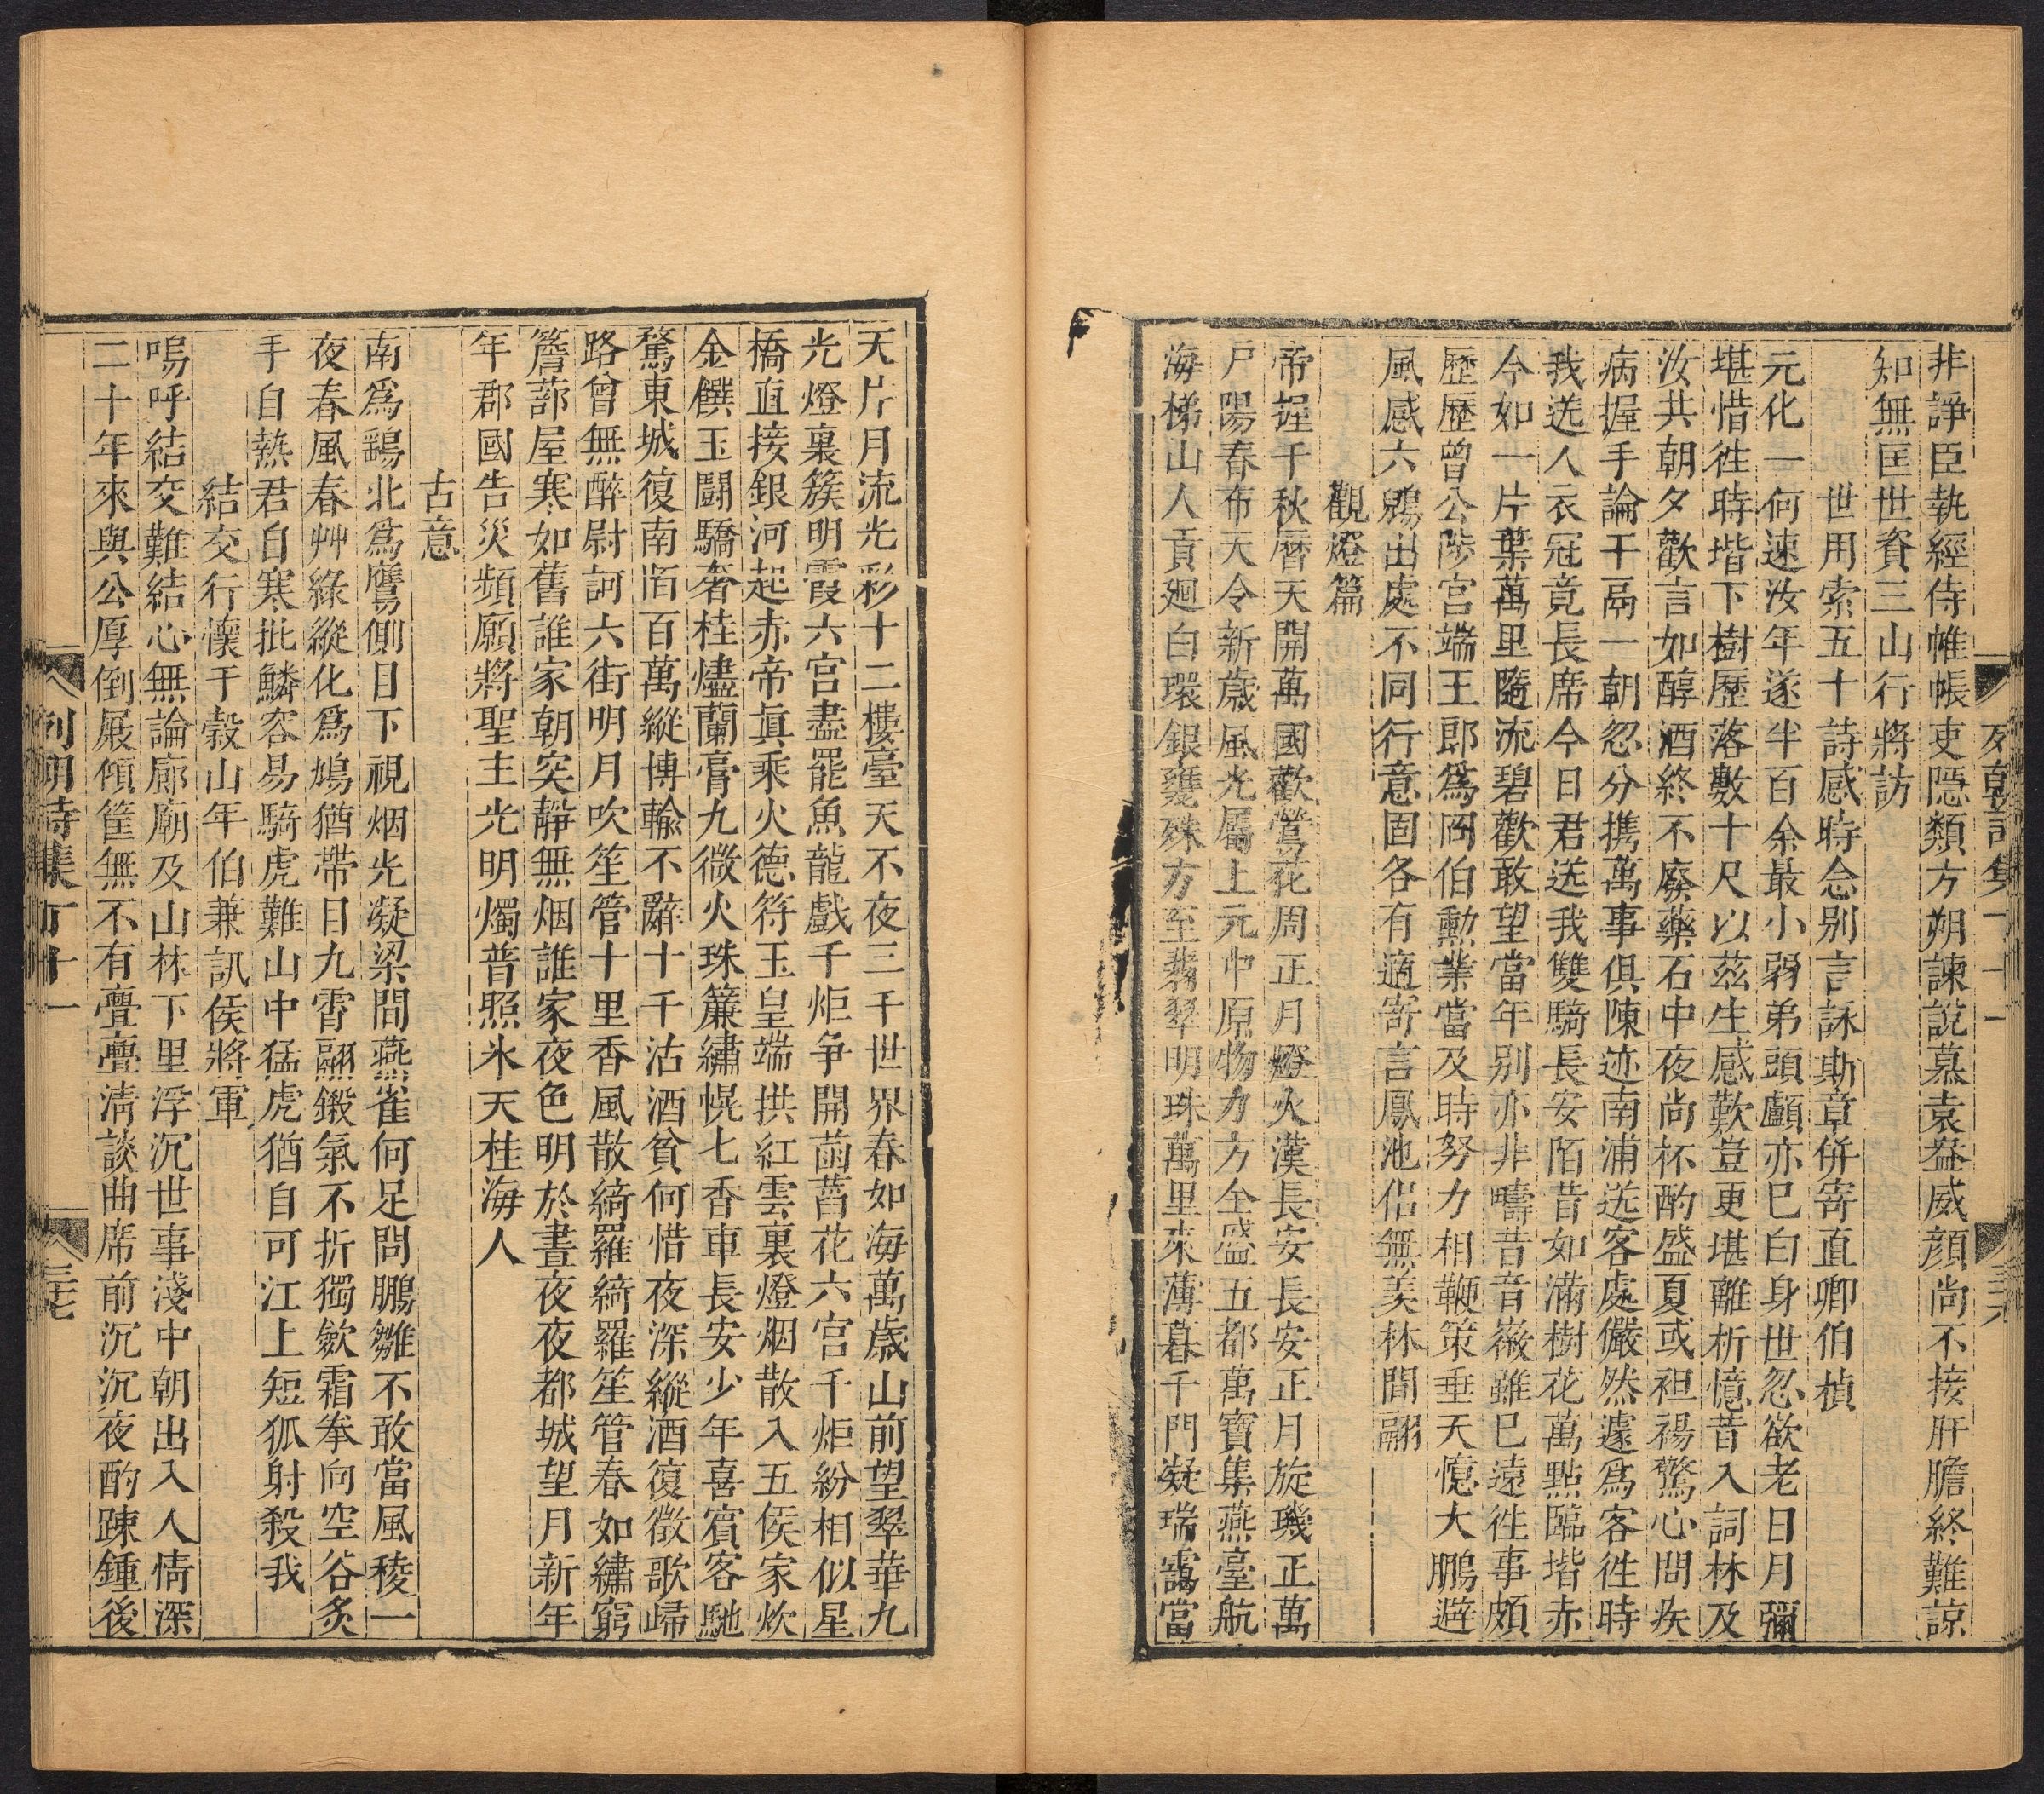 非諍臣執經侍帷帳吏隱類方朔諫說慕袁盎威顏尚不接肝膽終難諒
知無匡世資三山行將訪
世用索五十詩感時念别言詠斯章併寄直卿伯楨
元化一何速汝年遂半百余最小弱弟頭顱亦巳白身世忽欲老日月彌
堪惜徃時堦下樹歷落數十尺以茲生感歎豈更堪離析憶昔入詞林及
汝共朝夕歡言如醇酒終不廢藥石中夜尚杯酌盛夏或袒裼驚心問疾
病握手論干鬲一朝忽分携萬事俱陳迹南浦送客處儼然遽爲客徃時
我送人衣冠竟長席今日君送我雙騎長安陌昔如滿樹花萬點臨堦赤
今如一片葉萬里隨流碧歡敢望當年别亦非疇昔音徽雖巳遠徃事頗
歷歷曾公陟宫端王郎爲冏伯勳業當及時努力相鞭策垂天憶大鵬避
風感六鷁出處不同行意固各有適寄言鳳池侣無羙林間翮
觀燈篇
帝握千秋曆天開萬國歡鶯花周正月燈火漢長安長安正月旋璣正萬
戸陽春布天令新歲風光屬上元中原物力方全盛五都萬寶集燕臺航
海梯山人貢廻白環銀甕殊方至翡翠明珠萬里來薄暮千門凝瑞靄當
天片月流光彩十二樓臺天不夜三千世界春如海萬歲山前望翠華九
光燈裏簇明霞六宫盡罷魚龍戲千炬争開菡萏花六宫千炬紛相似星
橋直接銀河起赤帝眞乘火德符玉皇端拱紅雲裏燈烟散入五侯家炊
金饌玉鬬驕奢桂燼蘭膏九微火珠簾繡幌七香車長安少年喜賓客馳
騖東城復南陌百萬縱博輸不辭十千沽酒貧何惜夜深縱酒復徵歌歸
路曾無醉尉訶六街明月吹笙管十里香風散綺羅綺羅笙管春如繡窮
簷蔀屋寒如舊誰家朝突靜無烟誰家夜色明於晝夜夜都城望月新年
年郡國告災頻願將聖主光明燭普照氷天桂海人
古意
南爲鷂北爲鷹側目下視烟光凝梁間燕雀何足問鵬雛不敢當風稜一
夜春風春艸綠縱化爲鳩猶帶日九霄翮鍛氣不折獨斂霜拳向空谷炙
手自熱君自寒批鱗容易騎虎難山中猛虎猶自可江上短狐射殺我
結交行懷于穀山年伯兼訊侯將軍
嗚呼結交難結心無論廊廟及山林下里浮沉世事淺中朝出入人情深
二十年來與公厚倒屣傾筐無不有亹亹淸談曲席前沉沉夜酌踈鍾後
列朝詩集丁十一
三十七